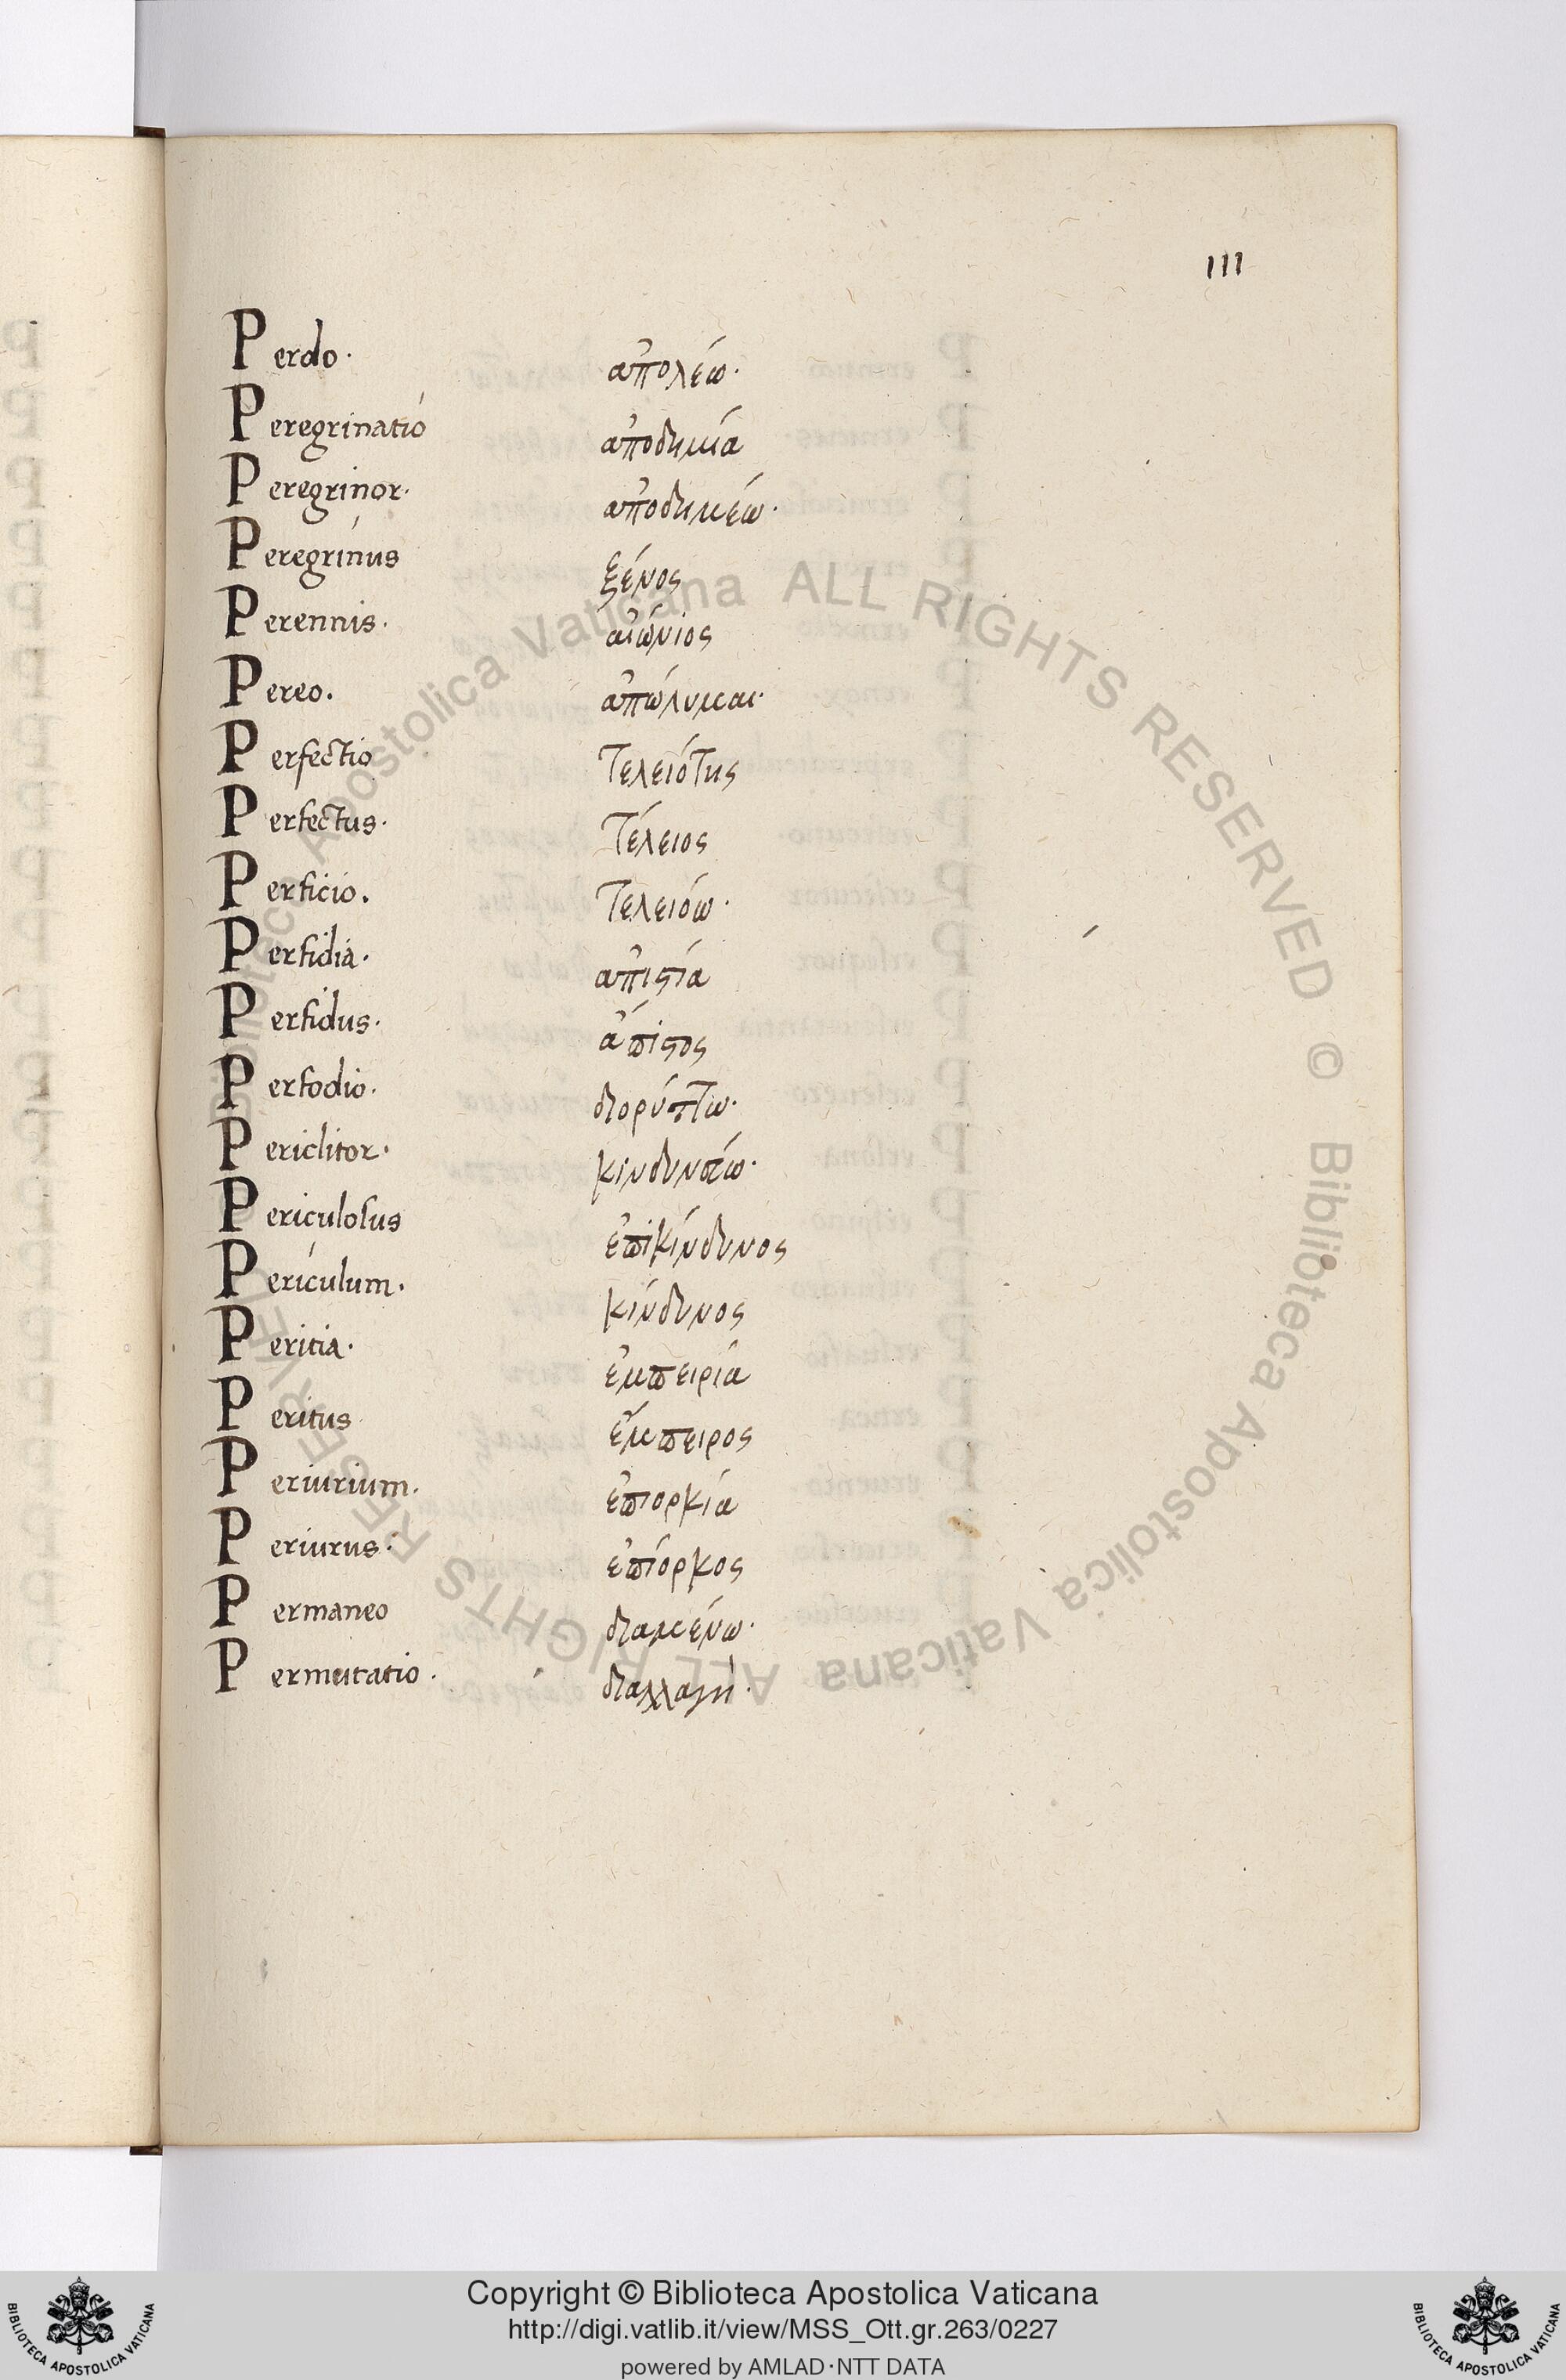 111
Perdo· ἀπολέω·
Peregrinatió ἀποδημία
Peregrinor· ἀποδημέω·
Peregrínus ξένος
Perennis· αἰώνιος
Pereo. ἀπώλυμαι·
Perfectio Τελειότης
Perfectus· Τέλειος
Perficio. Τελειόω·
Perfidia· ἀπιστία
Perfidus· ἄπιστος
Perfodio· διορύπτω·
Periclitor· κινδυνεύω·
Periculosus ἐπικίνδυνος
Perículum· κίνδυνος
Peritia· ἐμπειρία
Peritus ἔμπειρος
Periurium· ἐπιορκία
Periurus· ἐπίορκος
Permaneo διαμένω·
Permutatio· διαλλαγή·
Bibliotheca Apostolica Vaticana ALL RIGHTS RESERVED © Biblioteca Apostolica Vaticana ALL RIGHTS RESERVED
Copyright © Biblioteca Apostolica Vaticana
http://digi.vatlib.it/view/MSS_Ott.gr.263/0227
powered by AMLAD·NTT DATA
BIBLIOTECA APOSTOLICA VATICANA
BIBLIOTECA APOSTOLICA VATICANA